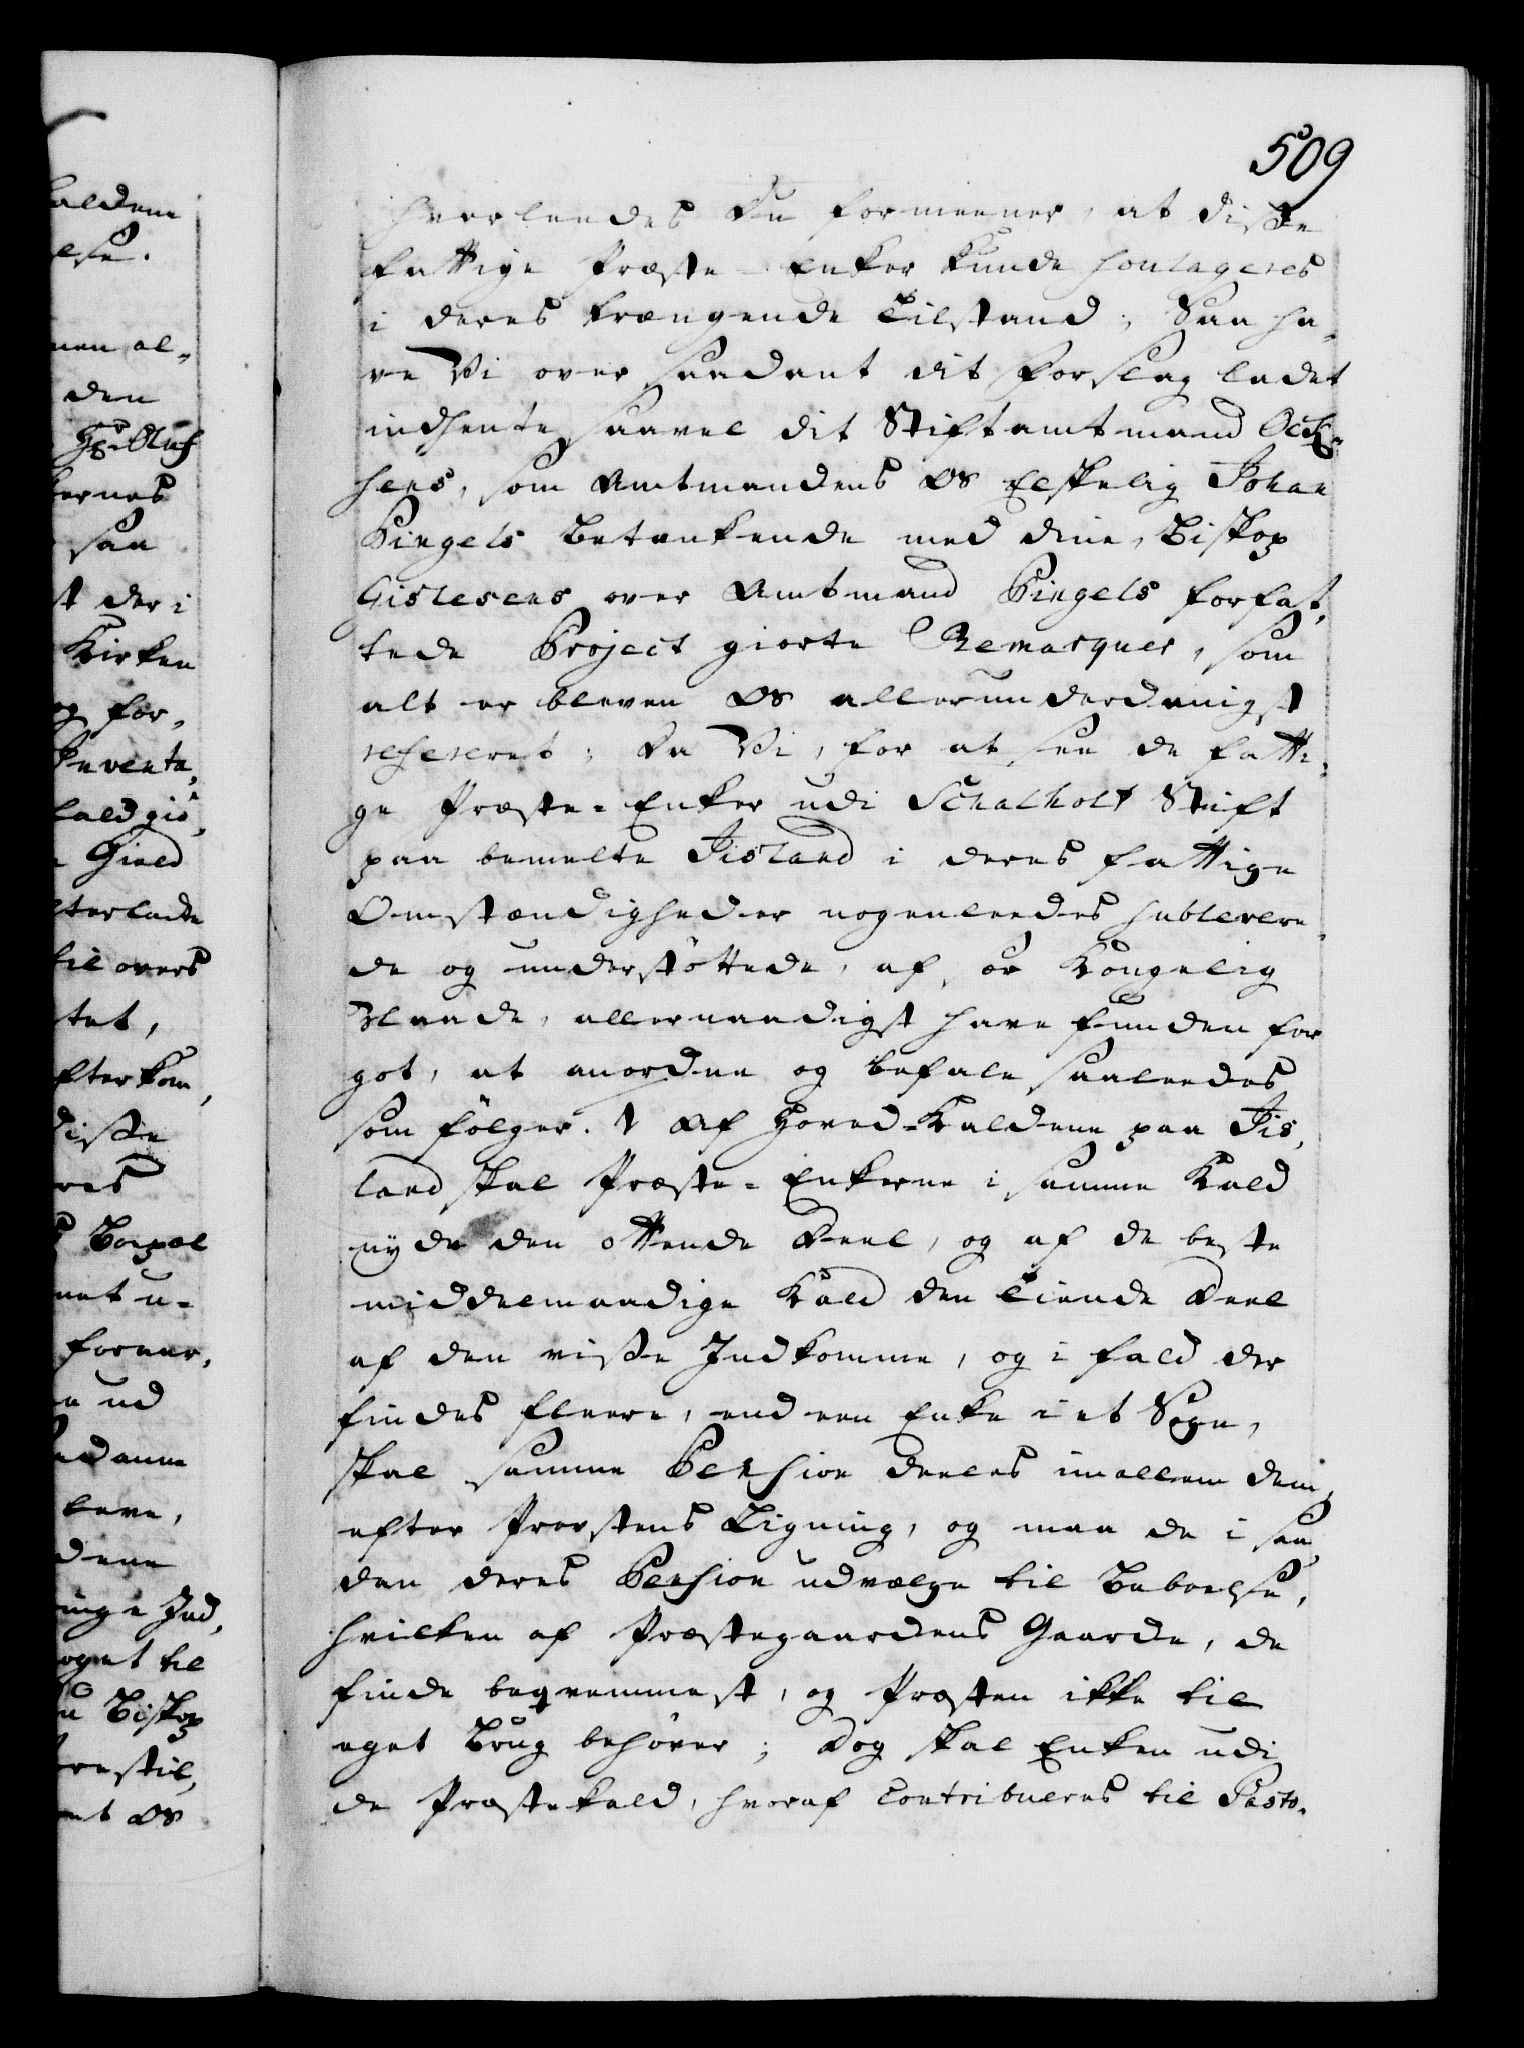 509
hvorleedes Du formeener, at disse
fattige Præste-Enker kunde soulageres
i deres trængende Tilstand; Saa ha-
ve Vi over saadant dit Forslag ladet
indhente saavel dit Stiftamtmand Ock-
sens, som Amtmandens Os Elskelig Johan
Pingels Betænkende med dine, Biskop
Gislesens over Amtmand Pingels forfat-
tede Project giorte Remarquer, som
alt er bleven Os allerunderdanigst
refereret; Da Vi, for at see de fatti-
ge Præste-Enker udi Schalholt Stift
paa bemelte Jisland i deres fattige
Omstændigheder nogenleedes subleveri-
de og understöttede, af sær Kongelig
Naade, allernaadigst have funden for
got, at anordne og befale saaleedes
som fölger. 1 Af Hoved-Kaldene paa Jis-
land skal Præste-Enkerne i samme Kald
nyde den ottende Deel, og af de beste
middelmaadige Kald den Tiende Deel
af den visse Indkomme, og i fald der
findes fleere, end een Enke i et Sogn,
skal samme Pension deeles imellem dem,
efter Provstens Ligning, og maa de i saa-
dan deres Pension udvælge til Beboelse,
hvilken af Præstegaardens Gaarde, de
finde beqvemmest, og Præsten ikke til
eget Brug behöver; Dog skal Enken udi
de Præstekald, hvoraf contribueres til Pasto-